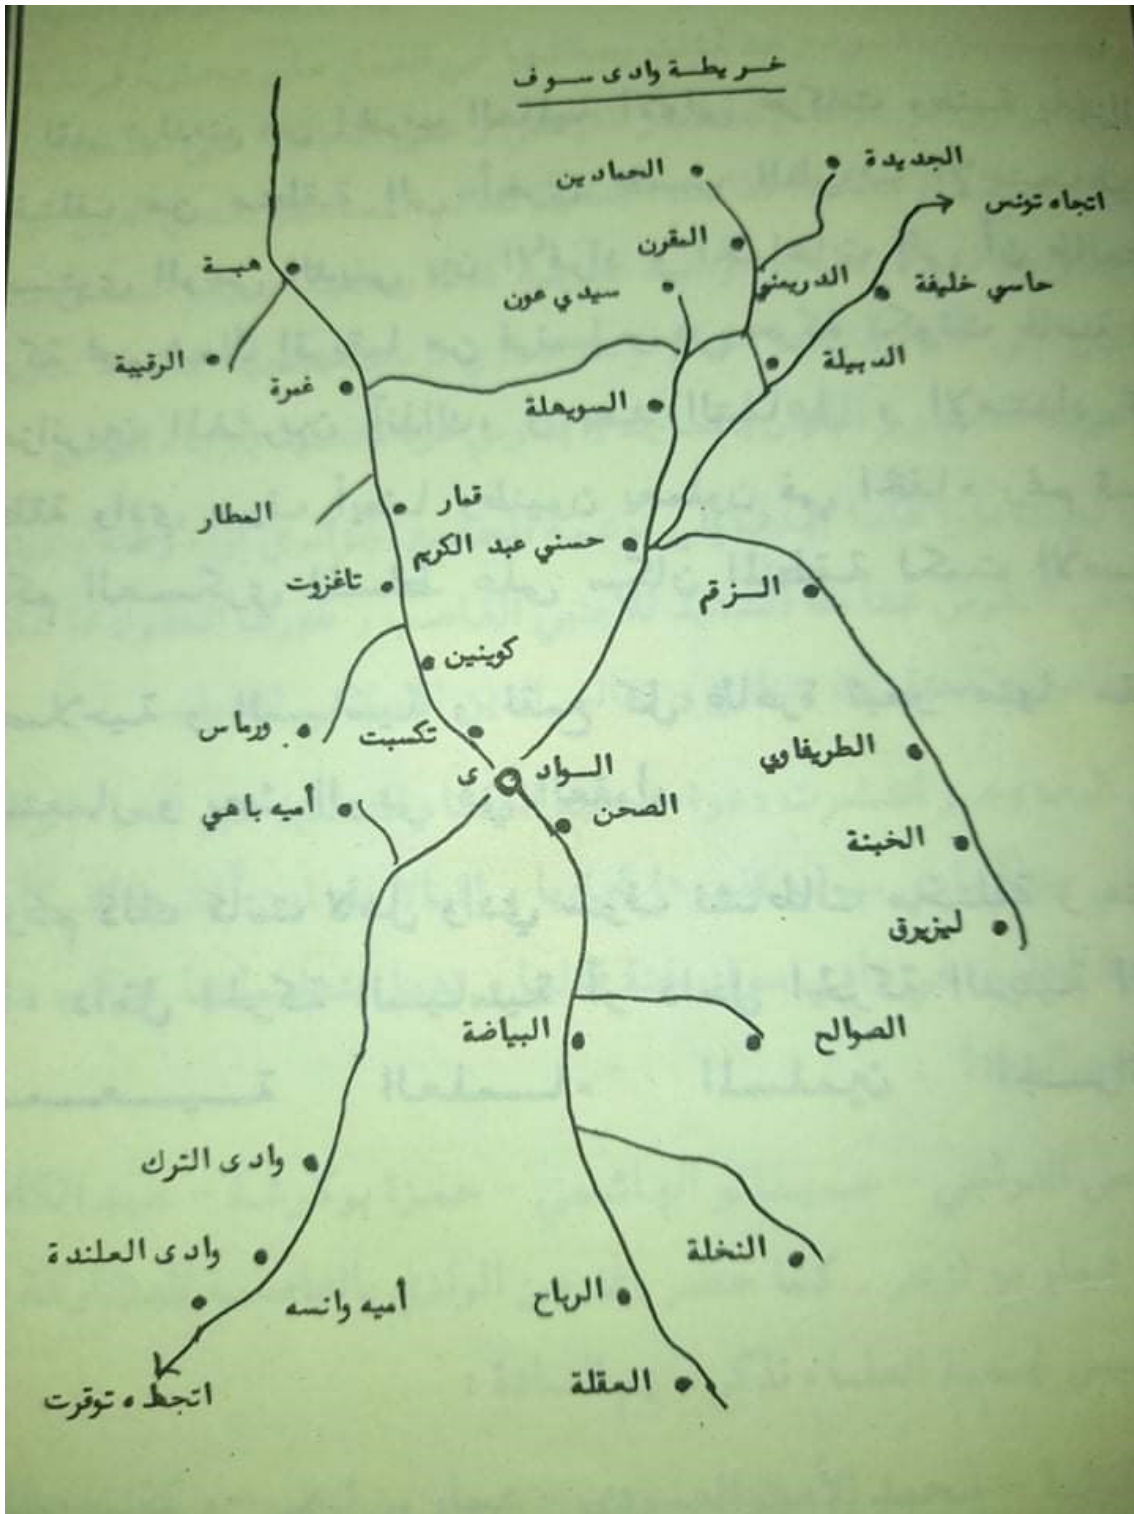 خريطة وادى سوف
الجديدة
الحمادين
اتجاه تونس
المقرن
الدريمني
حاسي خليفة
سيدي عون
هبة
الدبيلة
الرقيبة
غمرة
السويهلة
قمار
العطار
حسني عبد الكريم
تاغزوت
الزقم
كوينين
ورماس
تكسبت
الطريفاوي
الوادى
أميه باهي
الصحن
الخبنة
ليزيرق
البياضة
الصوالح
وادى الترك
وادى العلندة
النخلة
أميه وانسه
الرباح
العقلة
اتجاه توقرت